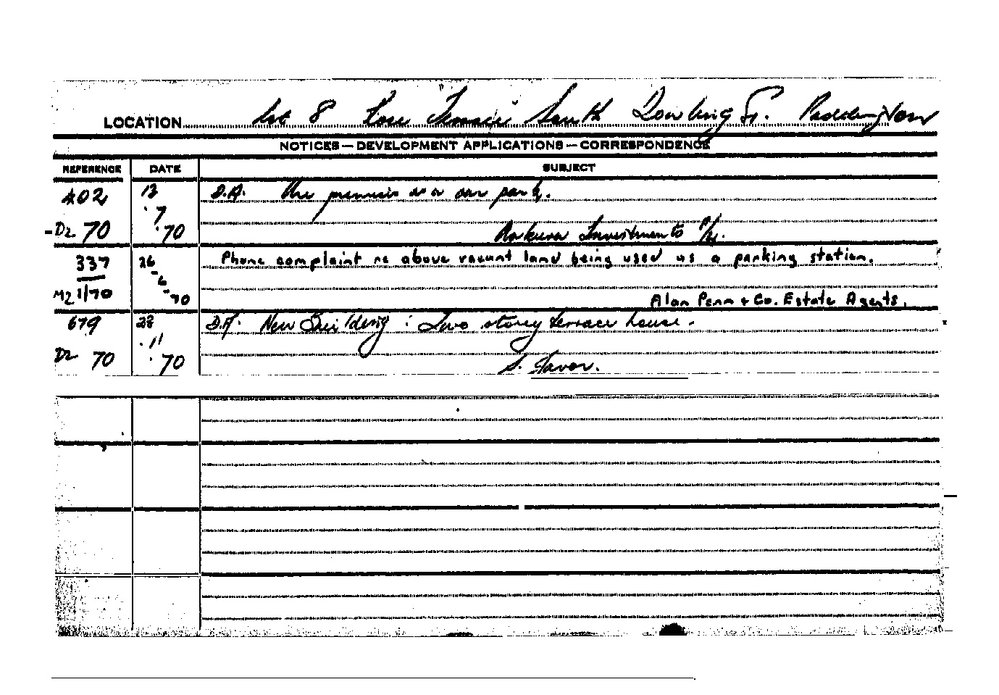 LOCATION Lot 8 Rose Terrace South Dowling St. Paddington
NOTICES — DEVELOPMENT APPLICATIONS — CORRESPONDENCE
REFERENCE DATE SUBJECT
402 13 D.A. Use premises as a car park.
7
D2 70 70 Investments P/L.
337 26 Phone complaint re above vacant land being used as a parking station.
6
M2 1/70 70 Alan Penn & Co. Estate Agents.
679 23 D.A. New Building : Two storey terrace house.
11
D2 70 70 S.